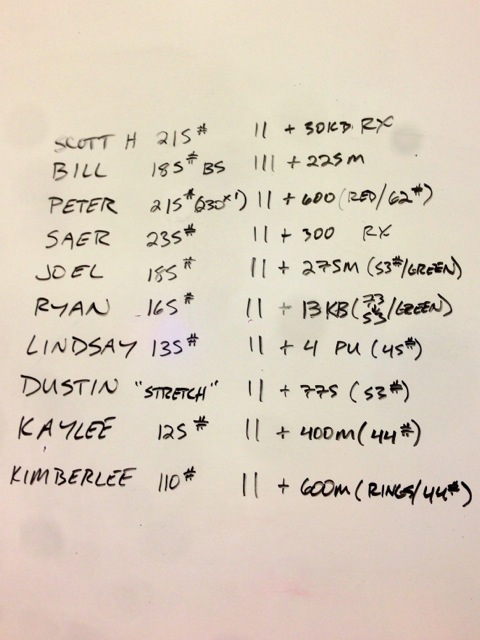 SCOTT H 215# || + 30KB RX
BILL 185# BS ||| + 225M
PETER 215# (230x1) || + 600 (RED/62#)
SAER 235# || + 300 RX
JOEL 185# || + 275M (53#/GREEN)
RYAN 165# || + 13 KB (73 ↓ 53/GREEN)
LINDSAY 135# || + 4 PU (45#)
DUSTIN "STRETCH" || + 775 (53#)
KAYLEE 125# || + 400M (44#)
KIMBERLEE 110# || + 600M (RINGS/44#)